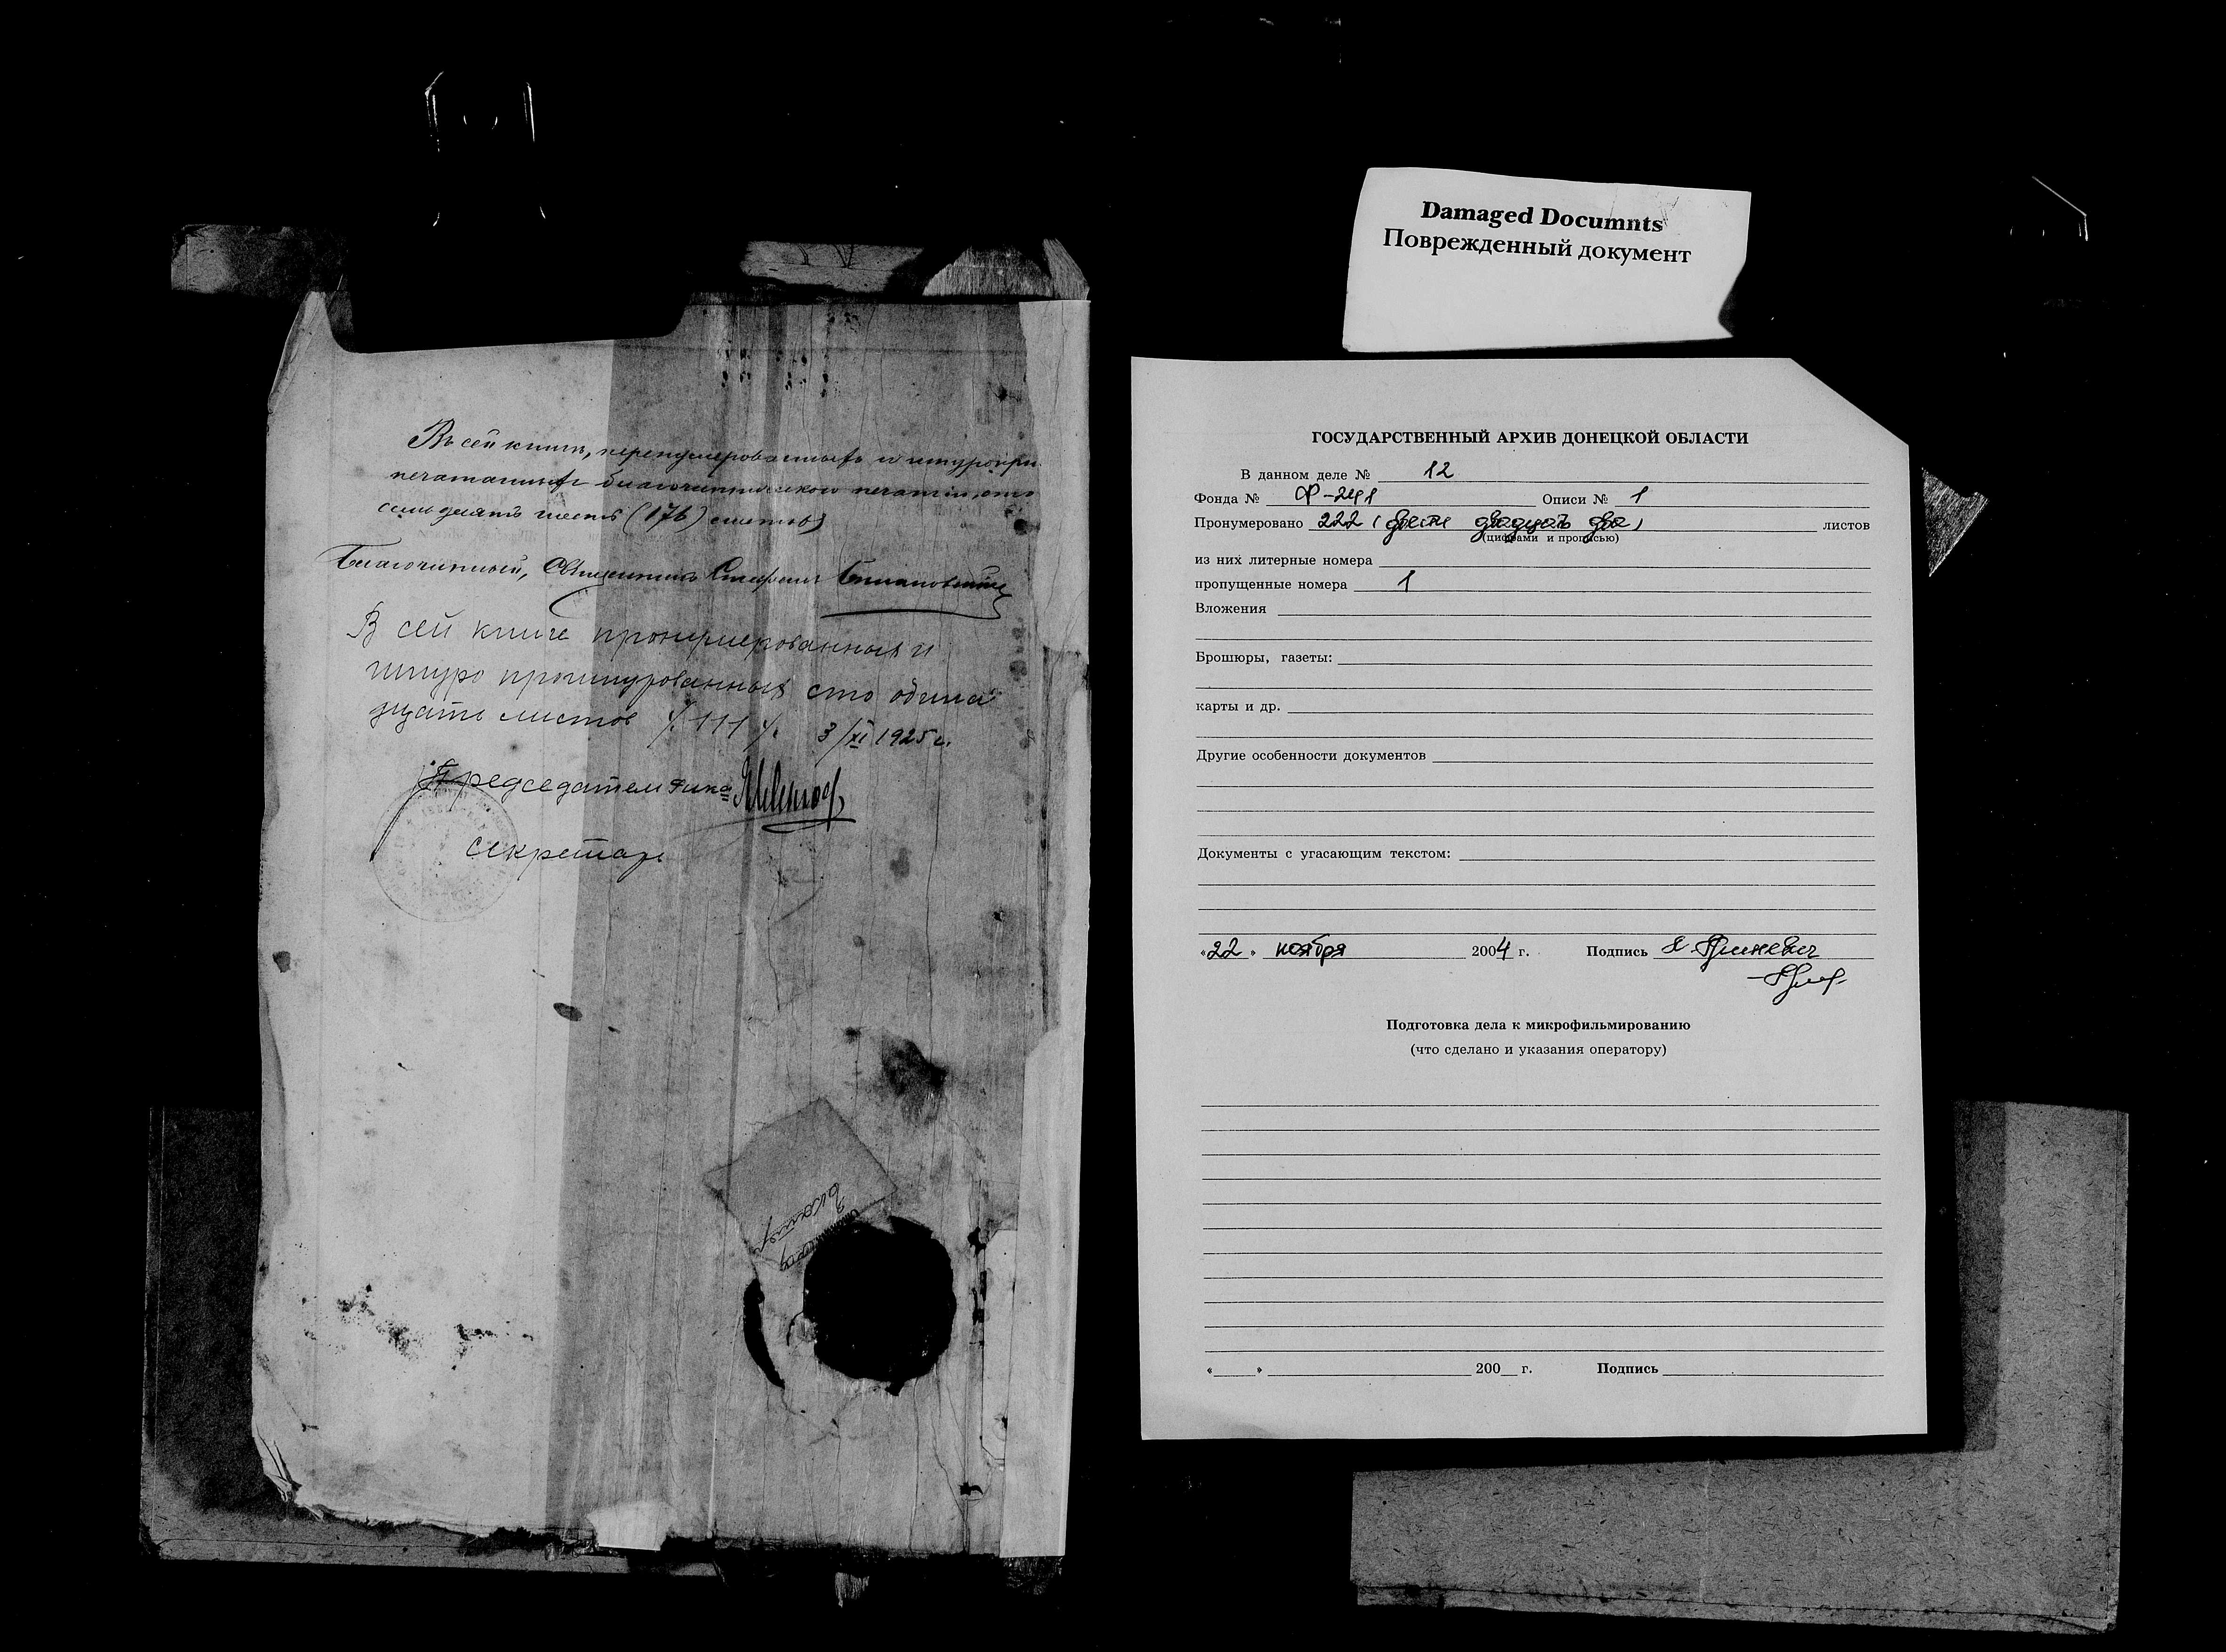 Въ сей книгѣ, перенумерованныхъ и шнуропри-
печатанныхъ благочинническою печатію, сто
семьдесятъ шесть (176) листовъ
Благочинный, Священникъ Стефанъ
В сей книге пронумерованных и
шнуро прошнурованных сто одина
дцать листов /. 111 /. 3/XI 1925 г.
Председатель
Секретарь
Damaged Documnts
Поврежденный документ
ГОСУДАРСТВЕННЫЙ АРХИВ ДОНЕЦКОЙ ОБЛАСТИ
В данном деле № 12
Фонда № Ф-241 Описи № 1
Пронумеровано 222 (двести двадцать два) листов
(цифрами и прописью)
из них литерные номера
пропущенные номера 1
Вложения
Брошюры, газеты:
карты и др.
Другие особенности документов
Документы с угасающим текстом:
«22» ноября 2004 г. Подпись
Подготовка дела к микрофильмированию
(что сделано и указания оператору)
«____» 200__ г. Подпись